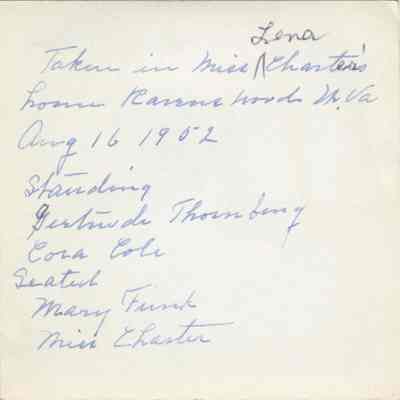 Lena
Taken in Miss ⋀ Charter's
home Ravenswoods W. Va
Aug 16 1952
Standing
Gertrude Thornburg
Cora Cole
Seated
Mary Funk
Miss Charter